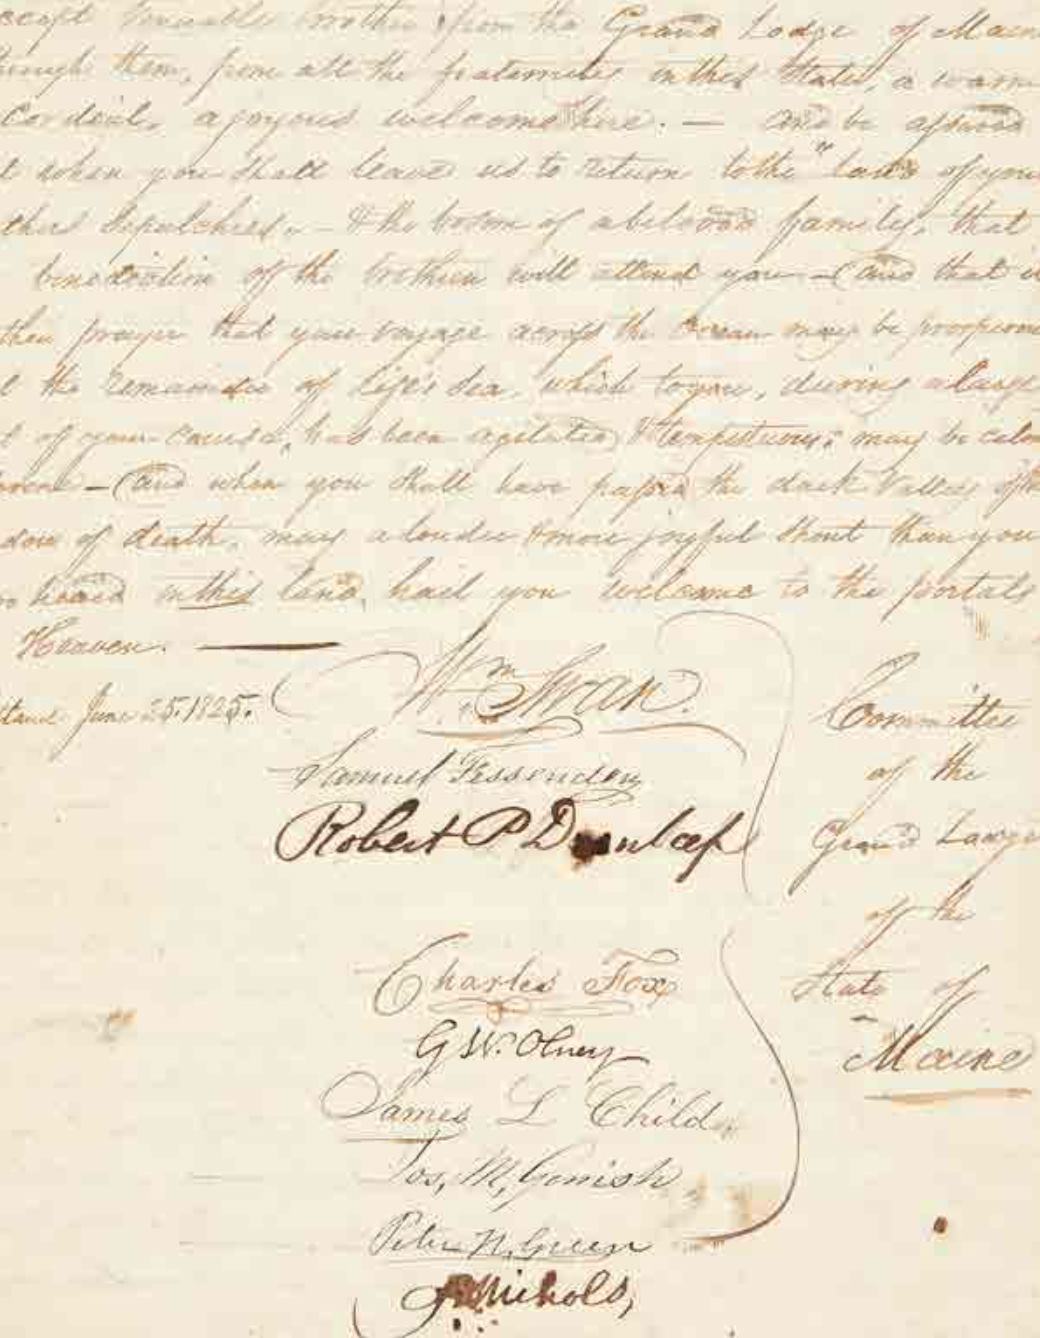 accept venerable brother from the Grand Lodge of Maine
through them, from all the fraternities in this State, a warm
cordial, a joyous welcome here. — And be assured
t when you shall leave us to return to the "land of your
thers Sepulchres, — & the bosom of a beloved family, that
benediction of the brethren will attend you — and that it
their prayer that your voyage across the Ocean may be prosperous
d the remainder of life's sea, which to you, during a large
t of your course, has been agitated & tempestuous, may be calm
erene — And when you shall have passed the dark Valley of the
dow of death, may a louder & more joyful shout than you
heard in this land, hail you welcome to the portals
Heaven. —
tland June 25. 1825.
Wm Swan
Samuel Fessenden
Robert P Dunlap
Charles Fox
G W. Olney
James L Child
Jos, M, Gerrish
Peter N, Green
Nichols,
Committee
of the
Grand Lodge
of the
State of
Maine